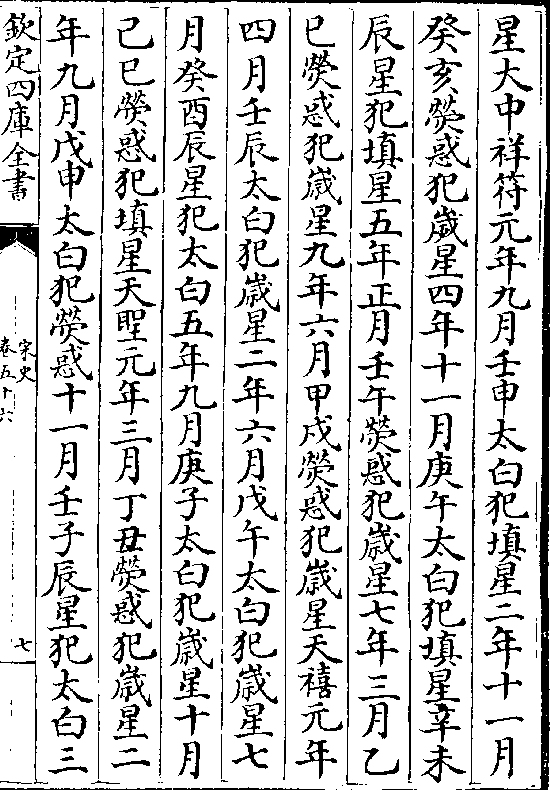 星大中祥符元年九月壬申太白犯填星二年十一月
癸亥熒惑犯嵗星四年十一月庚午太白犯填星辛未
辰星犯填星五年正月壬午熒惑犯嵗星七年三月乙
巳熒惑犯嵗星九年六月甲戍熒惑犯嵗星天禧元年
四月壬辰太白犯嵗星二年六月戊午太白犯嵗星七
月癸酉辰星犯太白五年九月庚子太白犯嵗星十月
己巳熒惑犯填星天聖元年三月丁丑熒惑犯嵗星二
年九月戊申太白犯熒惑十一月壬子辰星犯太白三
欽定四庫全書
宋史
卷五十六
七